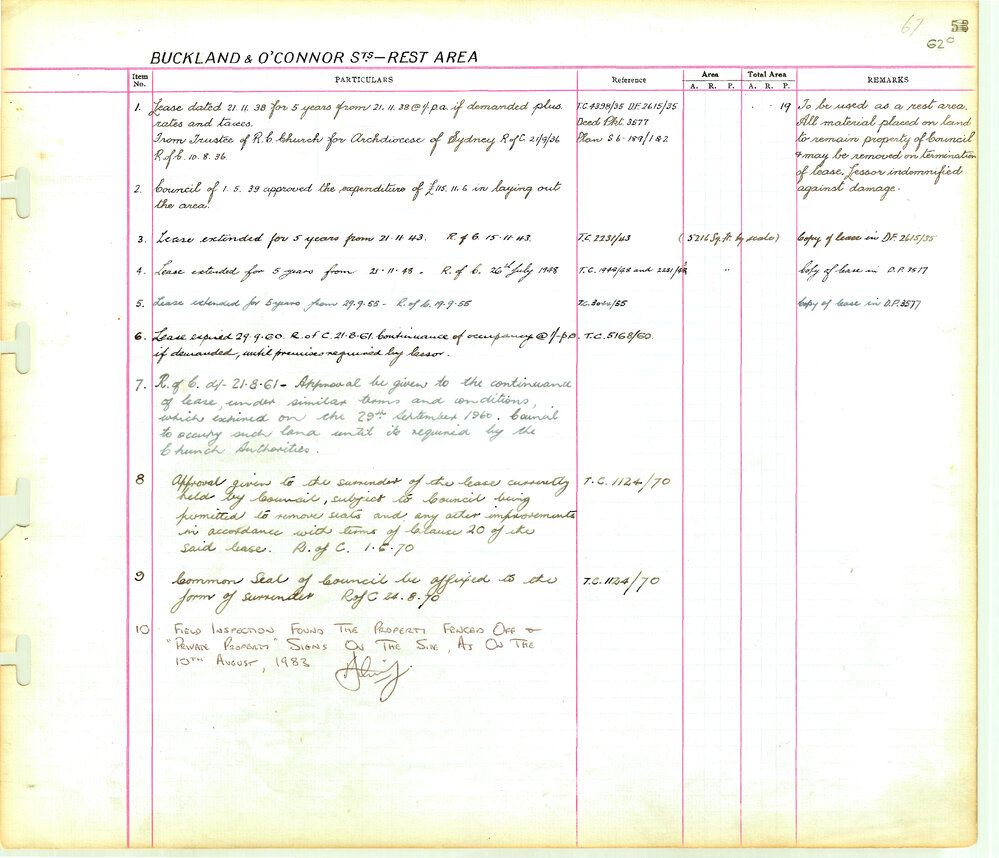 67 58
G2c
BUCKLAND & O'CONNOR STS — REST AREA
Item No. PARTICULARS Reference Area Total Area REMARKS
A. R. P. A. R. P.
1. Lease dated 21.11.38 for 5 years from 21.11.38 @ 1/- p.a. if demanded plus T.C. 4398/35 D.F. 2615/35 . . 19 To be used as a rest area.
rates and taxes. Deed Pkt. 3577 All material placed on land
From Trustee of R.C. Church for Archdiocese of Sydney R of C 21/9/36 Plan S6-189/1&2 to remain property of Council
R of C. 10.8.36. & may be removed on termination
of lease. Lessor indemnified
2. Council of 1.5.39 approved the expenditure of £115.11.6 in laying out against damage.
the area.
3. Lease extended for 5 years from 21.11.43. R. of C. 15.11.43. T.C. 2231/43 (5216 Sq. ft. by scale) Copy of lease in D.F. 2615/35
4. Lease extended for 5 years from 21-11-48 - R. of C. 26th July 1948 T.C. 1949/48 and 2231/43 " Copy of lease in D.P. 3577
5. Lease extended for 5 years from 29.9.55 - R. of C. 19.9.55 T.C. 3064/55 Copy of lease in D.P. 3577
6. Lease expired 29.9.60. R. of C. 21.8.61. Continuance of occupancy @ 1/- p.a. T.C. 5168/60.
if demanded, until premises required by lessor.
7. R. of C. d/- 21.8.61 - Approval be given to the continuance
of lease, under similar terms and conditions,
which expired on the 29th September 1960. Council
to occupy such land until its required by the
Church Authorities.
8 Approval given to the surrender of the lease currently T.C. 1124/70
held by Council, subject to Council being
permitted to remove seats and any other improvements
in accordance with terms of Clause 20 of the
said lease. R. of C. 1.6.70
9 Common Seal of Council be affixed to the T.C. 1124/70
form of surrender R of C 24.8.70
10 FIELD INSPECTION FOUND THE PROPERTY FENCED OFF &
"PRIVATE PROPERTY" SIGNS ON THE SITE, AS ON THE
10TH AUGUST, 1983